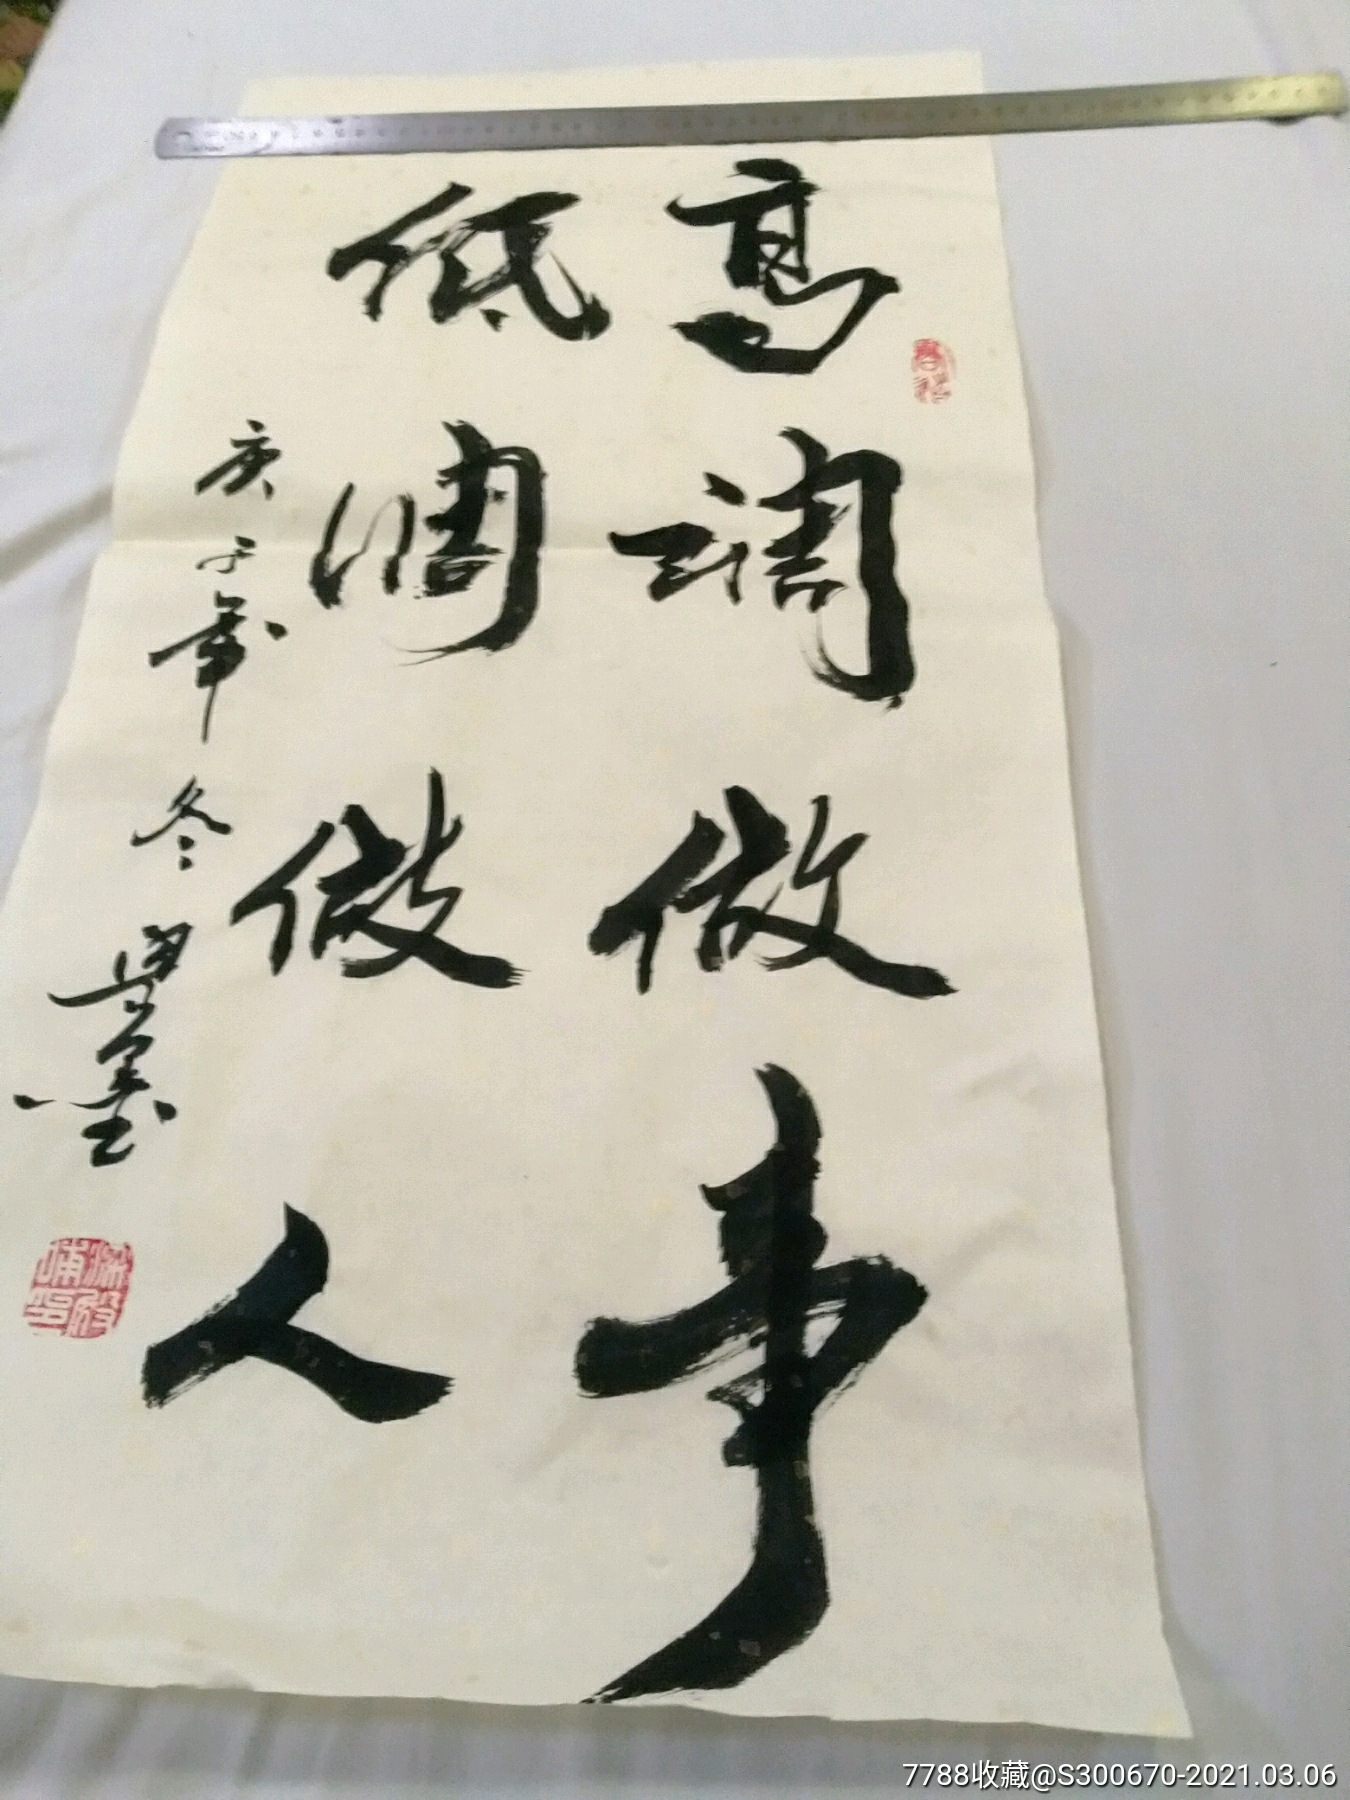 高调做事
低调做人
庚子年冬
7788收藏@S300670-2021.03.06